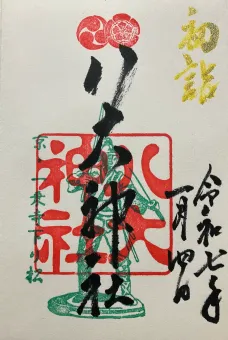 初詣
令和七年
一月四日
八大神社
八大神社
京 一乗寺下り松